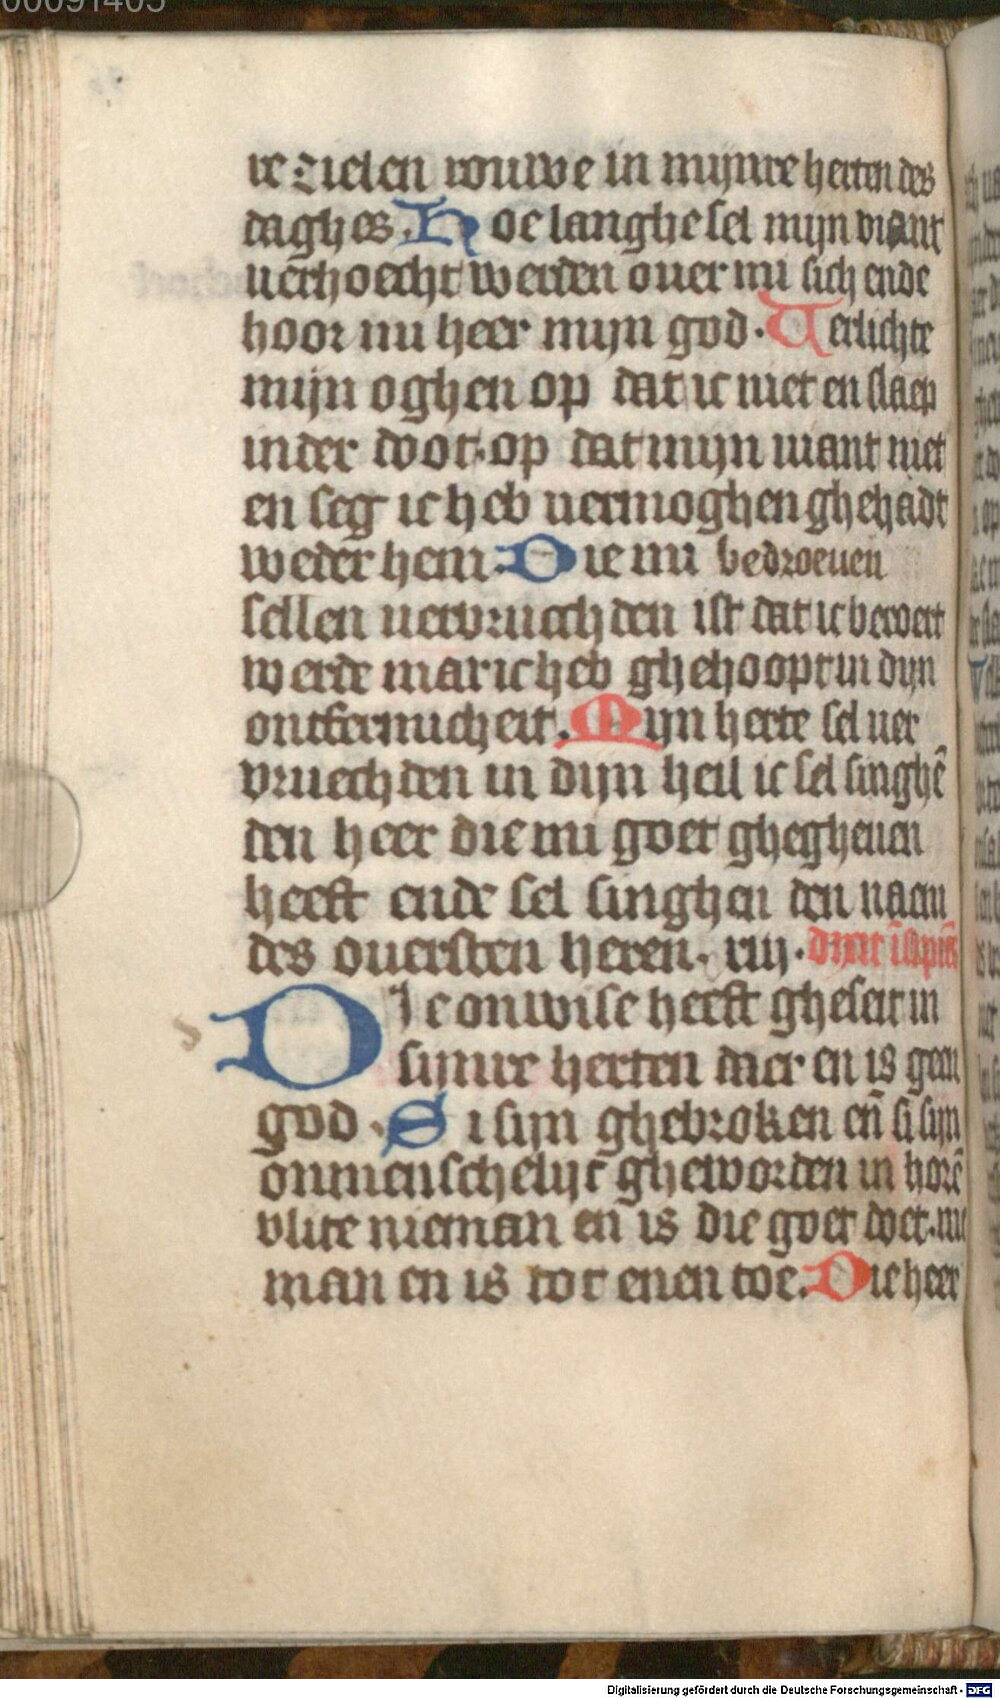 00091405
re zielen rouwe in mijnre herten des
daghes. Hoe langhe sel mijn viant
uerhoecht werden ouer mi sich ende
hoor mi heer mijn god. Uerlichte
mijn oghen op dat ic niet en slaep
inder doot. op dat mijn uiant niet
en seg ic heb uermoghen ghehadt
weder hem. Die mi bedroeuen
sellen uervruechden ist dat ic beroert
werde mar ic heb ghehoopt in dijn
ontfermicheit. Mijn herte sel uer
vruechden in dijn heil ic sel singhē
den heer die mi goet ghegheuen
heeft ende sel singhen den naem
des ouersten heren. xiij. dixit īsipiēs
Die onwise heeft gheseit in
sijnre herten daer en is geen
god. Si sijn ghebroken en̄ si sijn
onmenschelijc gheworden in horē
vlite nieman en is die goet doet. nie
man en is tot enen toe. Die heer
Digitalisierung gefördert durch die Deutsche Forschungsgemeinschaft - DFG